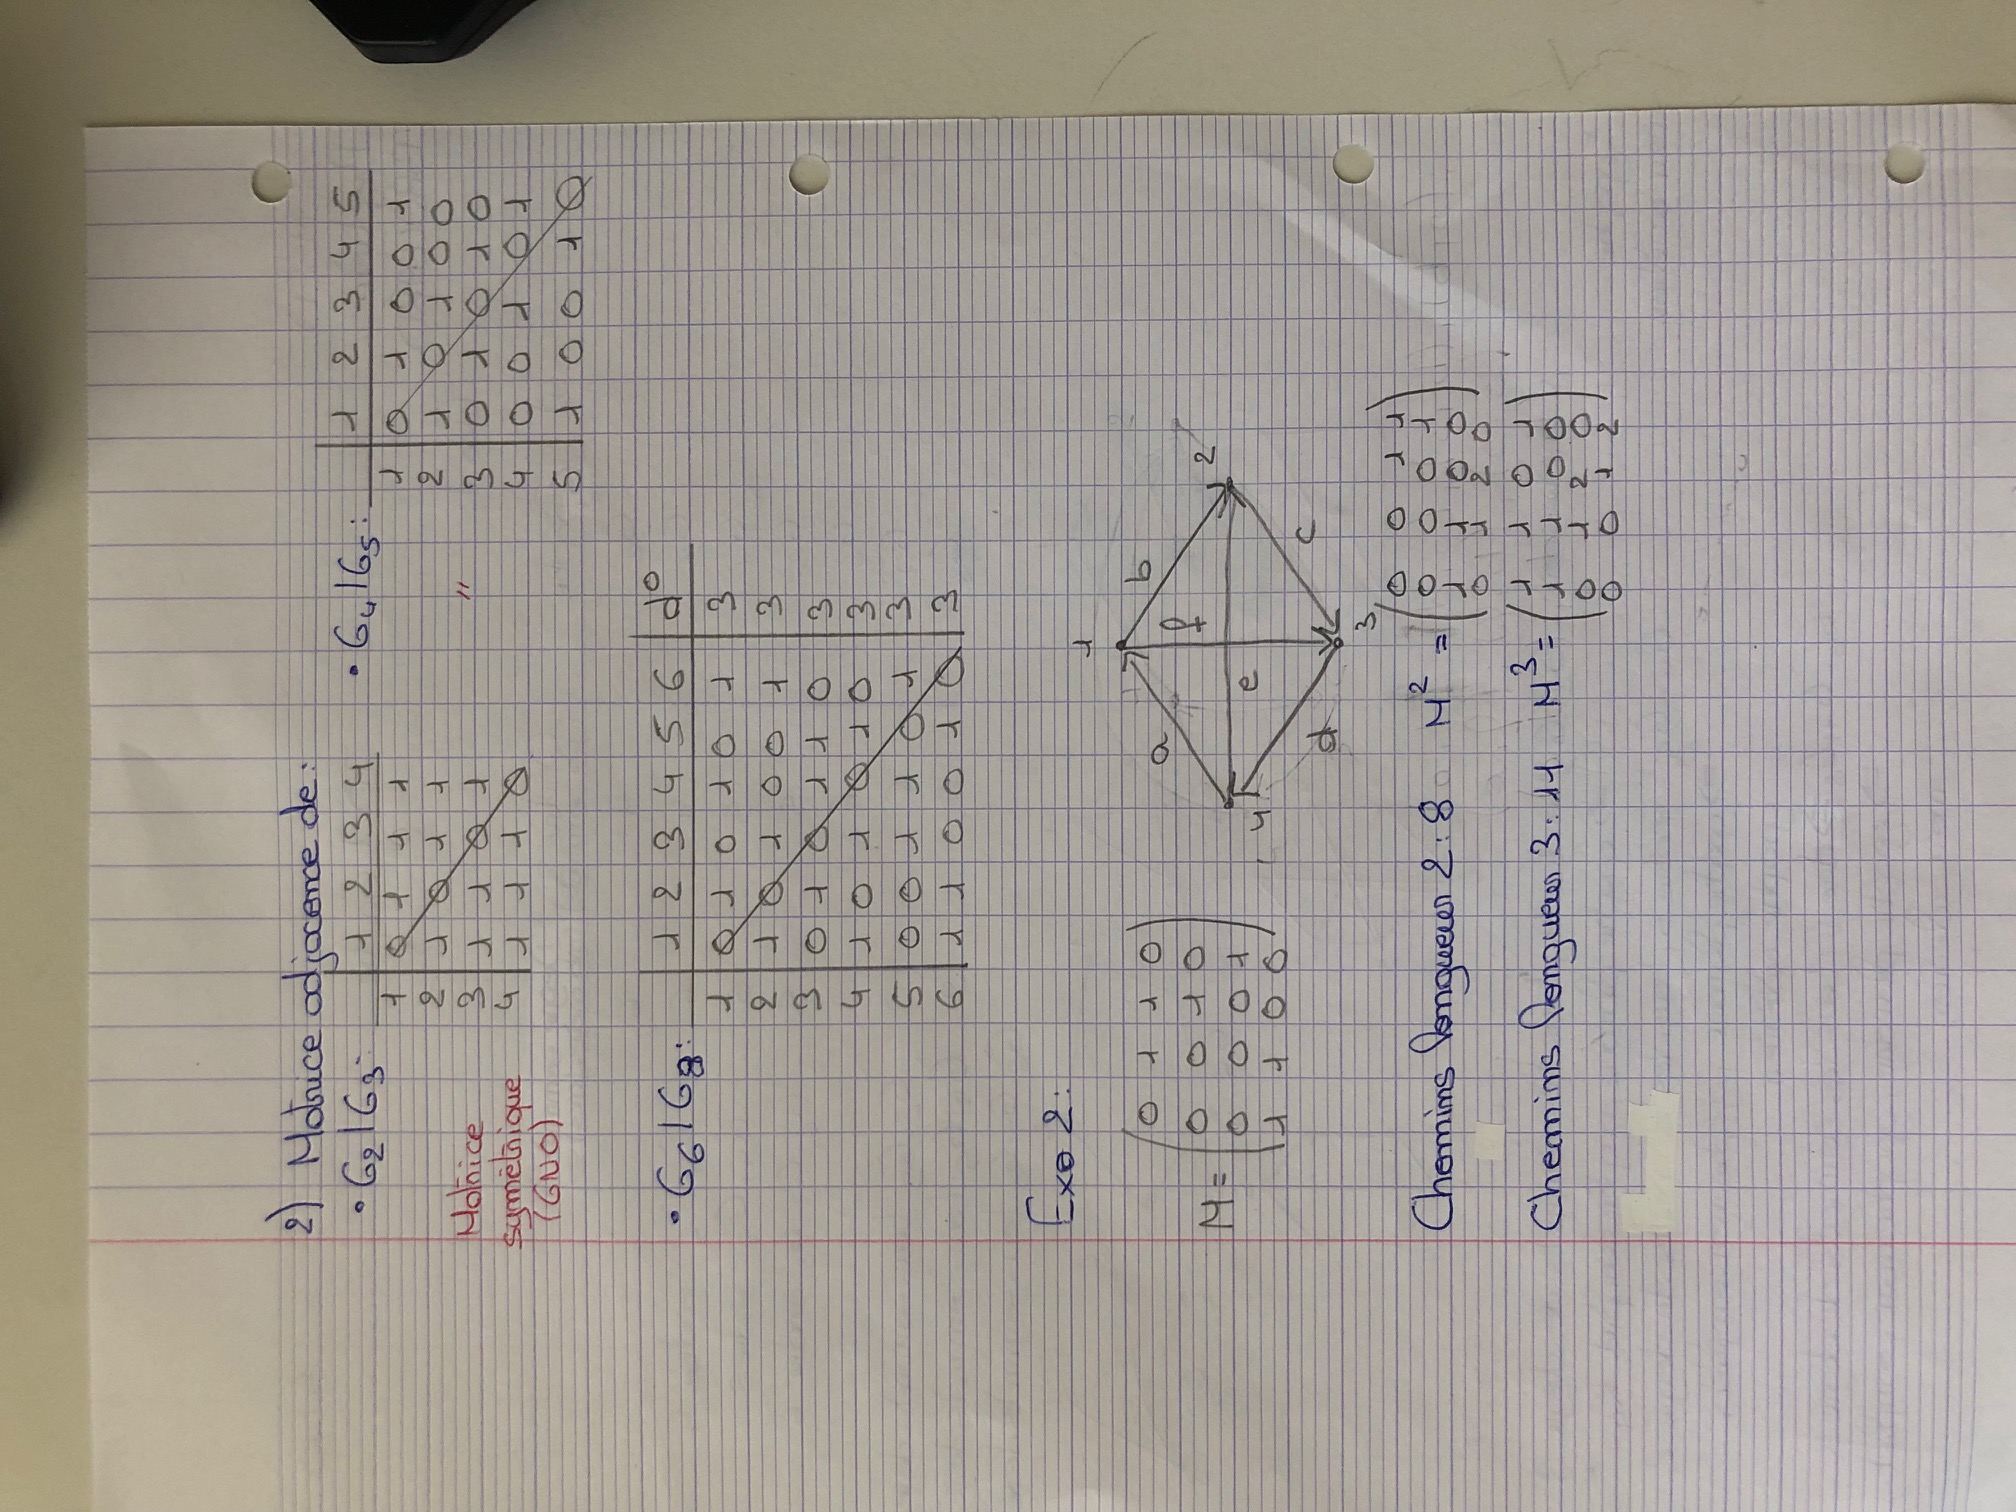 2) Matrice adjacence de:
• G2/G3:
1 2 3 4
1 0 1 1 1
2 1 0 1 1
3 1 1 0 1
4 1 1 1 0
Matrice
symétrique
(GNO)
• G4/G5:
1 2 3 4 5
1 0 1 0 0 1
2 1 0 1 0 0
3 0 1 0 1 0
4 0 0 1 0 1
5 1 0 0 1 0
"
• G6/G8:
1 2 3 4 5 6 d°
1 0 1 0 1 0 1 3
2 1 0 1 0 0 1 3
3 0 1 0 1 1 0 3
4 1 0 1 0 1 0 3
5 0 0 1 1 0 1 3
6 1 1 0 0 1 0 3
Exo 2:
M =
0 1 1 0
0 0 1 0
0 0 0 1
1 1 0 0
1
a
b
f
2
4
e
d
c
3
Chemins longueur 2: 8 M² =
0 0 1 1
0 0 0 1
1 1 0 0
0 1 2 0
Chemins longueur 3: 11 M³ =
1 1 0 1
1 1 0 0
0 1 2 0
0 0 1 2